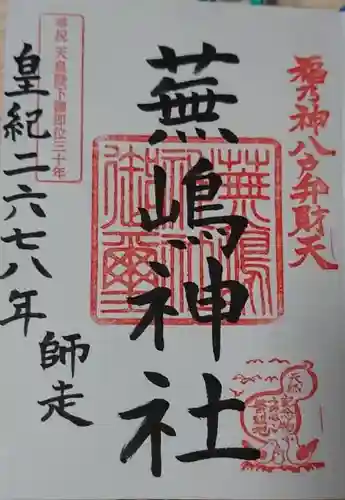 福乃神八方弁財天
蕪嶋神社
奉祝 天皇陛下御即位三十年
皇紀二六七八年
師走
天然
記念物
蕪嶋